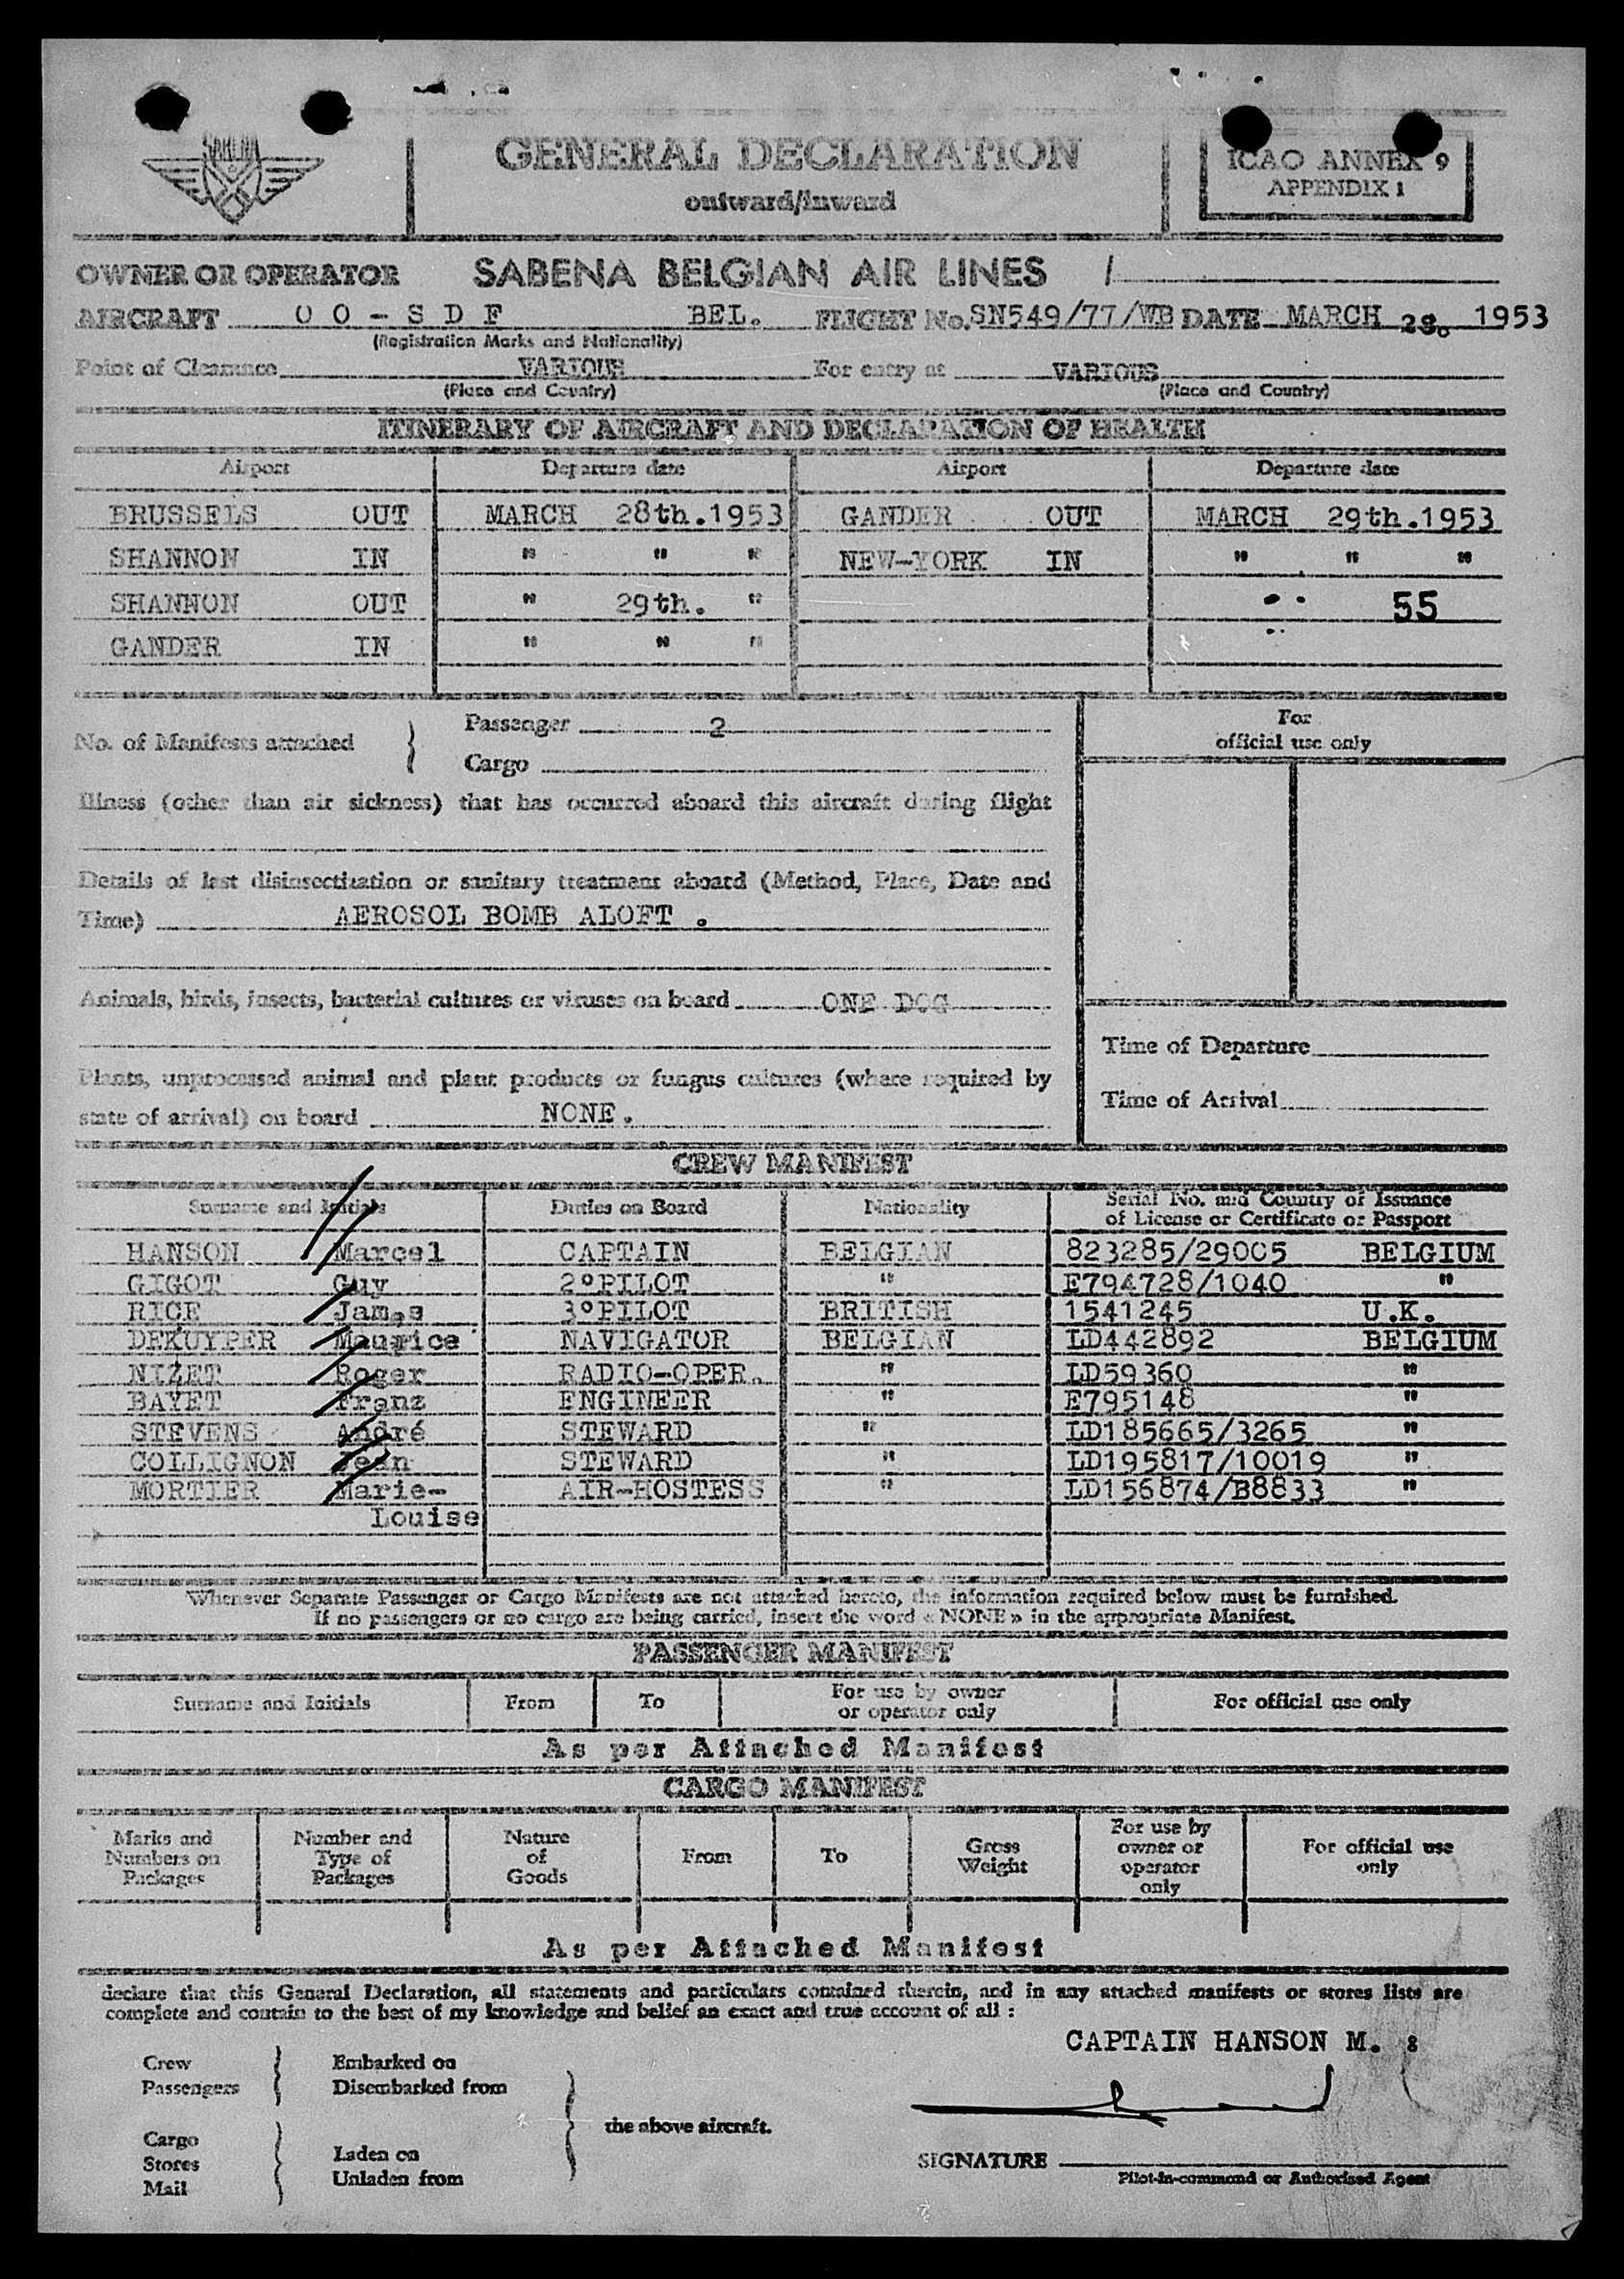 SABENA
GENERAL DECLARATION
outward/inward
ICAO ANNEX 9
APPENDIX 1
OWNER OR OPERATOR SABENA BELGIAN AIR LINES /
AIRCRAFT OO-SDF BEL. FLIGHT No. SN549/77/WB DATE MARCH 28. 1953
(Registration Marks and Nationality)
Point of Clearance VARIOUS For entry at VARIOUS
(Place and Country) (Place and Country)
ITINERARY OF AIRCRAFT AND DECLARATION OF HEALTH
Airport Departure date Airport Departure date
BRUSSELS OUT MARCH 28th.1953 GANDER OUT MARCH 29th.1953
SHANNON IN " " " NEW-YORK IN " " "
SHANNON OUT " 29th. " 55
GANDER IN " " "
No. of Manifests attached } Passenger 2
Cargo
For
official use only
Illness (other than air sickness) that has occurred aboard this aircraft during flight
Details of last disinsectization or sanitary treatment aboard (Method, Place, Date and
Time) AEROSOL BOMB ALOFT .
Animals, birds, insects, bacterial cultures or viruses on board ONE DOG
Time of Departure
Plants, unprocessed animal and plant products or fungus cultures (where required by
state of arrival) on board NONE.
Time of Arrival
CREW MANIFEST
Surname and Initials Duties on Board Nationality Serial No. and Country of Issuance
of License or Certificate or Passport
HANSON Marcel CAPTAIN BELGIAN 823285/29005 BELGIUM
GIGOT Guy 2°PILOT " E794728/1040 "
RICE James 3°PILOT BRITISH 1541245 U.K.
DEKUYPER Maurice NAVIGATOR BELGIAN LD442892 BELGIUM
NIZET Roger RADIO-OPER. " LD59360 "
BAYET Franz ENGINEER " E795148 "
STEVENS André STEWARD " LD185665/3265 "
COLLIGNON Jean STEWARD " LD195817/10019 "
MORTIER Marie- AIR-HOSTESS " LD156874/B8833 "
Louise
Whenever Separate Passenger or Cargo Manifests are not attached hereto, the information required below must be furnished.
If no passengers or no cargo are being carried, insert the word « NONE » in the appropriate Manifest.
PASSENGER MANIFEST
Surname and Initials From To For use by owner
or operator only For official use only
As per Attached Manifest
CARGO MANIFEST
Marks and
Numbers on
Packages
Number and
Type of
Packages
Nature
of
Goods
From
To
Gross
Weight
For use by
owner or
operator
only
For official use
only
As per Attached Manifest
declare that this General Declaration, all statements and particulars contained therein, and in any attached manifests or stores lists are
complete and contain to the best of my knowledge and belief an exact and true account of all :
CAPTAIN HANSON M. :
Crew } Embarked on
Passengers Disembarked from
the above aircraft.
Cargo
Stores } Laden on
Mail Unladen from
SIGNATURE
Pilot-in-command or Authorised Agent